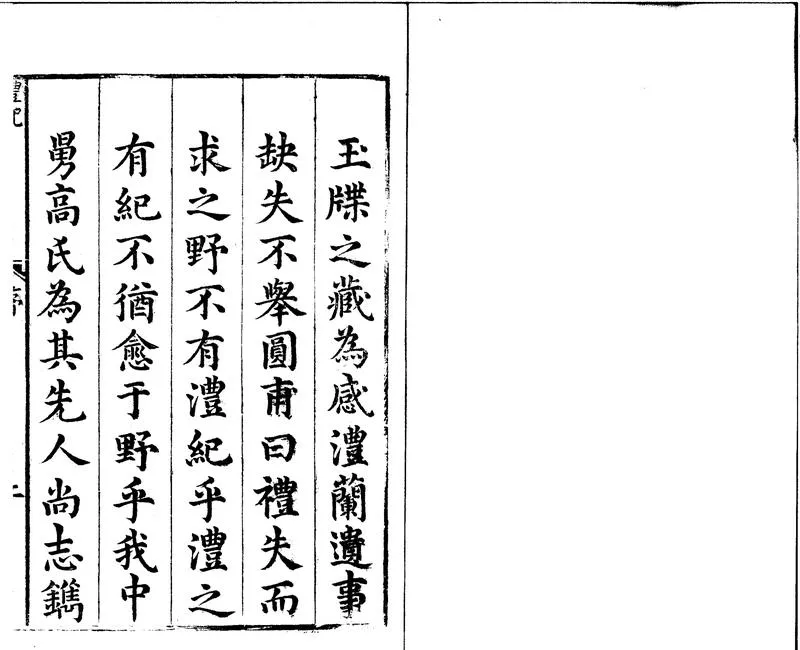 玉牒之藏為感澧蘭遺事
缺失不舉圓甫曰禮失而
求之野不有澧紀乎澧之
有紀不猶愈于野乎我中
舅高氏為其先人尚志鐫